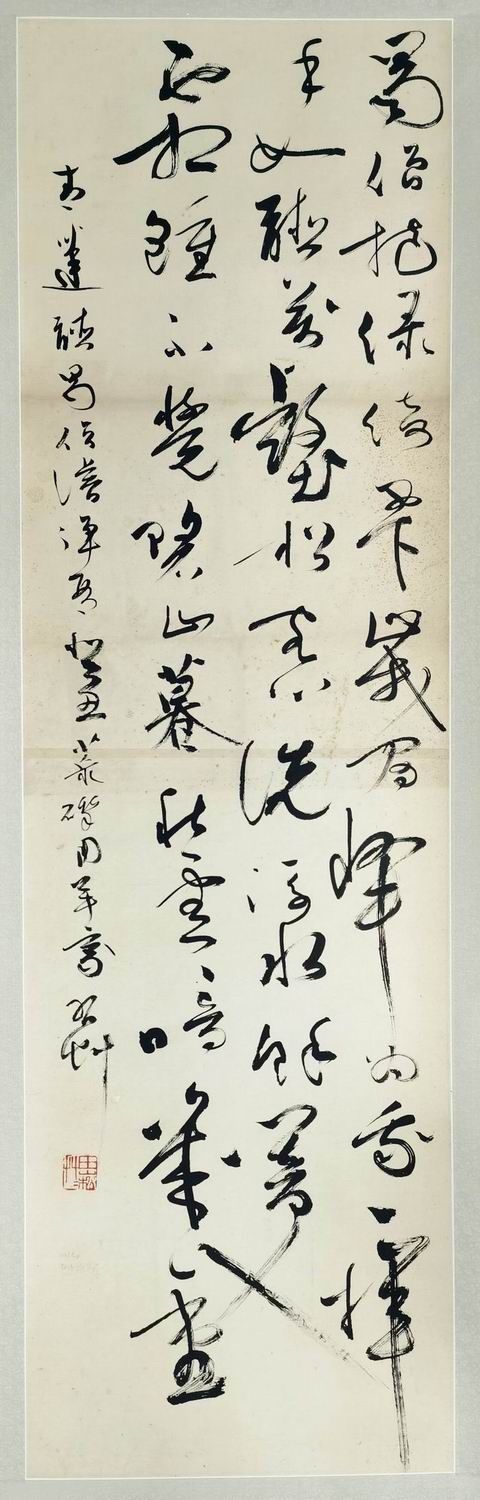 蜀僧抱綠綺西下峩眉峰为我一揮
手如聽萬壑松客心洗流水餘響入
霜鐘不覺碧山暮秋雲暗幾重
青蓮聽蜀僧濬彈琴 癸丑